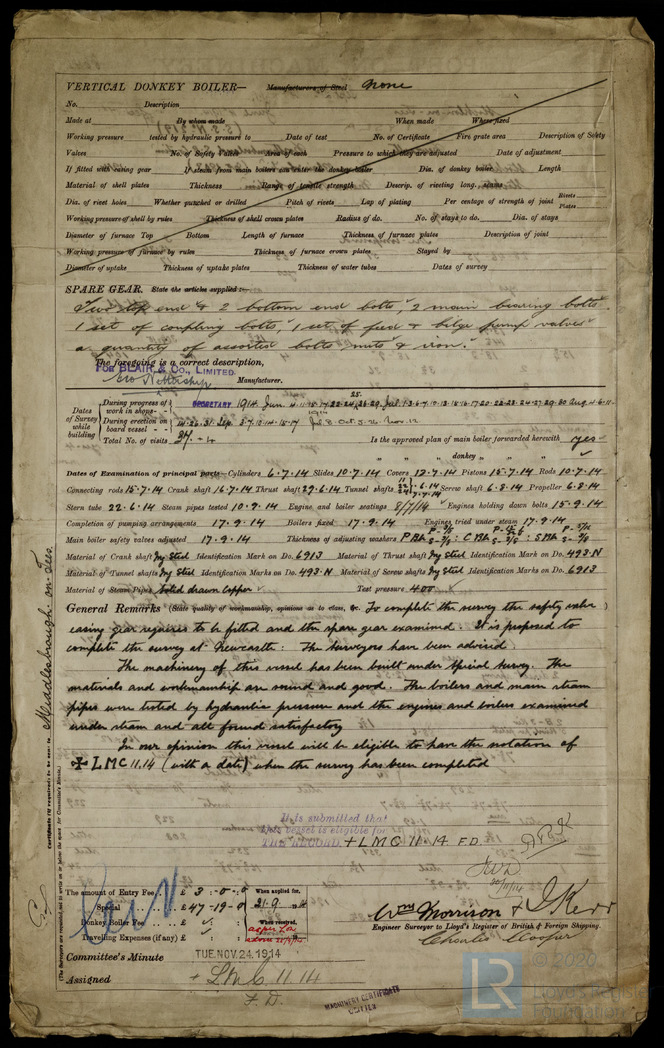 VERTICAL DONKEY BOILER— Manufacturers of Steel None
No. Description
Made at By whom made When made Where fixed
Working pressure tested by hydraulic pressure to Date of test No. of Certificate Fire grate area Description of Safety
Valves No. of Safety Valves Area of each Pressure to which they are adjusted Date of adjustment
If fitted with easing gear If steam from main boilers can enter the donkey boiler Dia. of donkey boiler Length
Material of shell plates Thickness Range of tensile strength Descrip. of riveting long. seams
Dia. of rivet holes Whether punched or drilled Pitch of rivets Lap of plating Per centage of strength of joint Rivets Plates
Working pressure of shell by rules Thickness of shell crown plates Radius of do. No. of stays to do. Dia. of stays
Diameter of furnace Top Bottom Length of furnace Thickness of furnace plates Description of joint
Working pressure of furnace by rules Thickness of furnace crown plates Stayed by
Diameter of uptake Thickness of uptake plates Thickness of water tubes Dates of survey
SPARE GEAR. State the articles supplied:—
Two top end & 2 bottom end bolts, 2 main bearing bolts
1 set of coupling bolts, 1 set of feed & bilge pump valves
a quantity of assorted bolts nuts & iron.
The foregoing is a correct description,
FOR BLAIR & CO., LIMITED.
Manufacturer.
SECRETARY
Dates of Survey while building
During progress of work in shops
During erection on board vessel
Total No. of visits 37
Is the approved plan of main boiler forwarded herewith yes
" " " donkey " " "
Dates of Examination of principal parts—Cylinders 6.7.14 Slides 10.7.14 Covers 13.7.14 Pistons 15.7.14 Rods 10.7.14
Connecting rods 15.7.14 Crank shaft 16.7.14 Thrust shaft 29.6.14 Tunnel shafts Screw shaft 6.8.14 Propeller 6.8.14
Stern tube 22.6.14 Steam pipes tested 10.9.14 Engine and boiler seatings 8/7/14 Engines holding down bolts 15.9.14
Completion of pumping arrangements 17.9.14 Boilers fixed 17.9.14 Engines tried under steam 17.9.14
Main boiler safety valves adjusted 17.9.14 Thickness of adjusting washers
Material of Crank shaft Ing Steel Identification Mark on Do. 6913 Material of Thrust shaft Ing Steel Identification Mark on Do. 493.N
Material of Tunnel shafts Ing Steel Identification Marks on Do. 493.N Material of Screw shafts Ing Steel Identification Marks on Do. 6913
Material of Steam Pipes Solid drawn Copper Test pressure 400
General Remarks (State quality of workmanship, opinions as to class, &c. To complete the survey the safety valve
easing gear requires to be fitted and the spare gear examined. It is proposed to
complete the survey at Newcastle: The Surveyors have been advised.
The machinery of this vessel has been built under Special Survey. The
materials and workmanship are sound and good. The boilers and main steam
pipes were tested by hydraulic pressure and the engines and boilers examined
under steam and all found satisfactory
In our opinion this vessel will be eligible to have the notation of
✠ LMC 11.14 (with a date) when the survey has been completed
It is submitted that
this vessel is eligible for
THE RECORD. + LMC 11.14 F.D.
The amount of Entry Fee .. £ 3 - 0 - 0
Special .. £ 47 - 19 - 0
Donkey Boiler Fee .. £
Travelling Expenses (if any) £
When applied for,
21.9.14
When received,
Wm Morrison & J. Kerr
Engineer Surveyor to Lloyd's Register of British & Foreign Shipping.
Charles Cooper
Committee's Minute TUE. NOV. 24. 1914
Assigned + LMC 11.14
F.D.
MACHINERY CERTIFICATE
WRITTEN
Middlesbrough-on-Tees.
Certificate (if required) to be sent to
(The Surveyors are requested not to write on or below the space for Committee's Minute.)
LR
© 2020
Lloyd's Register
Foundation